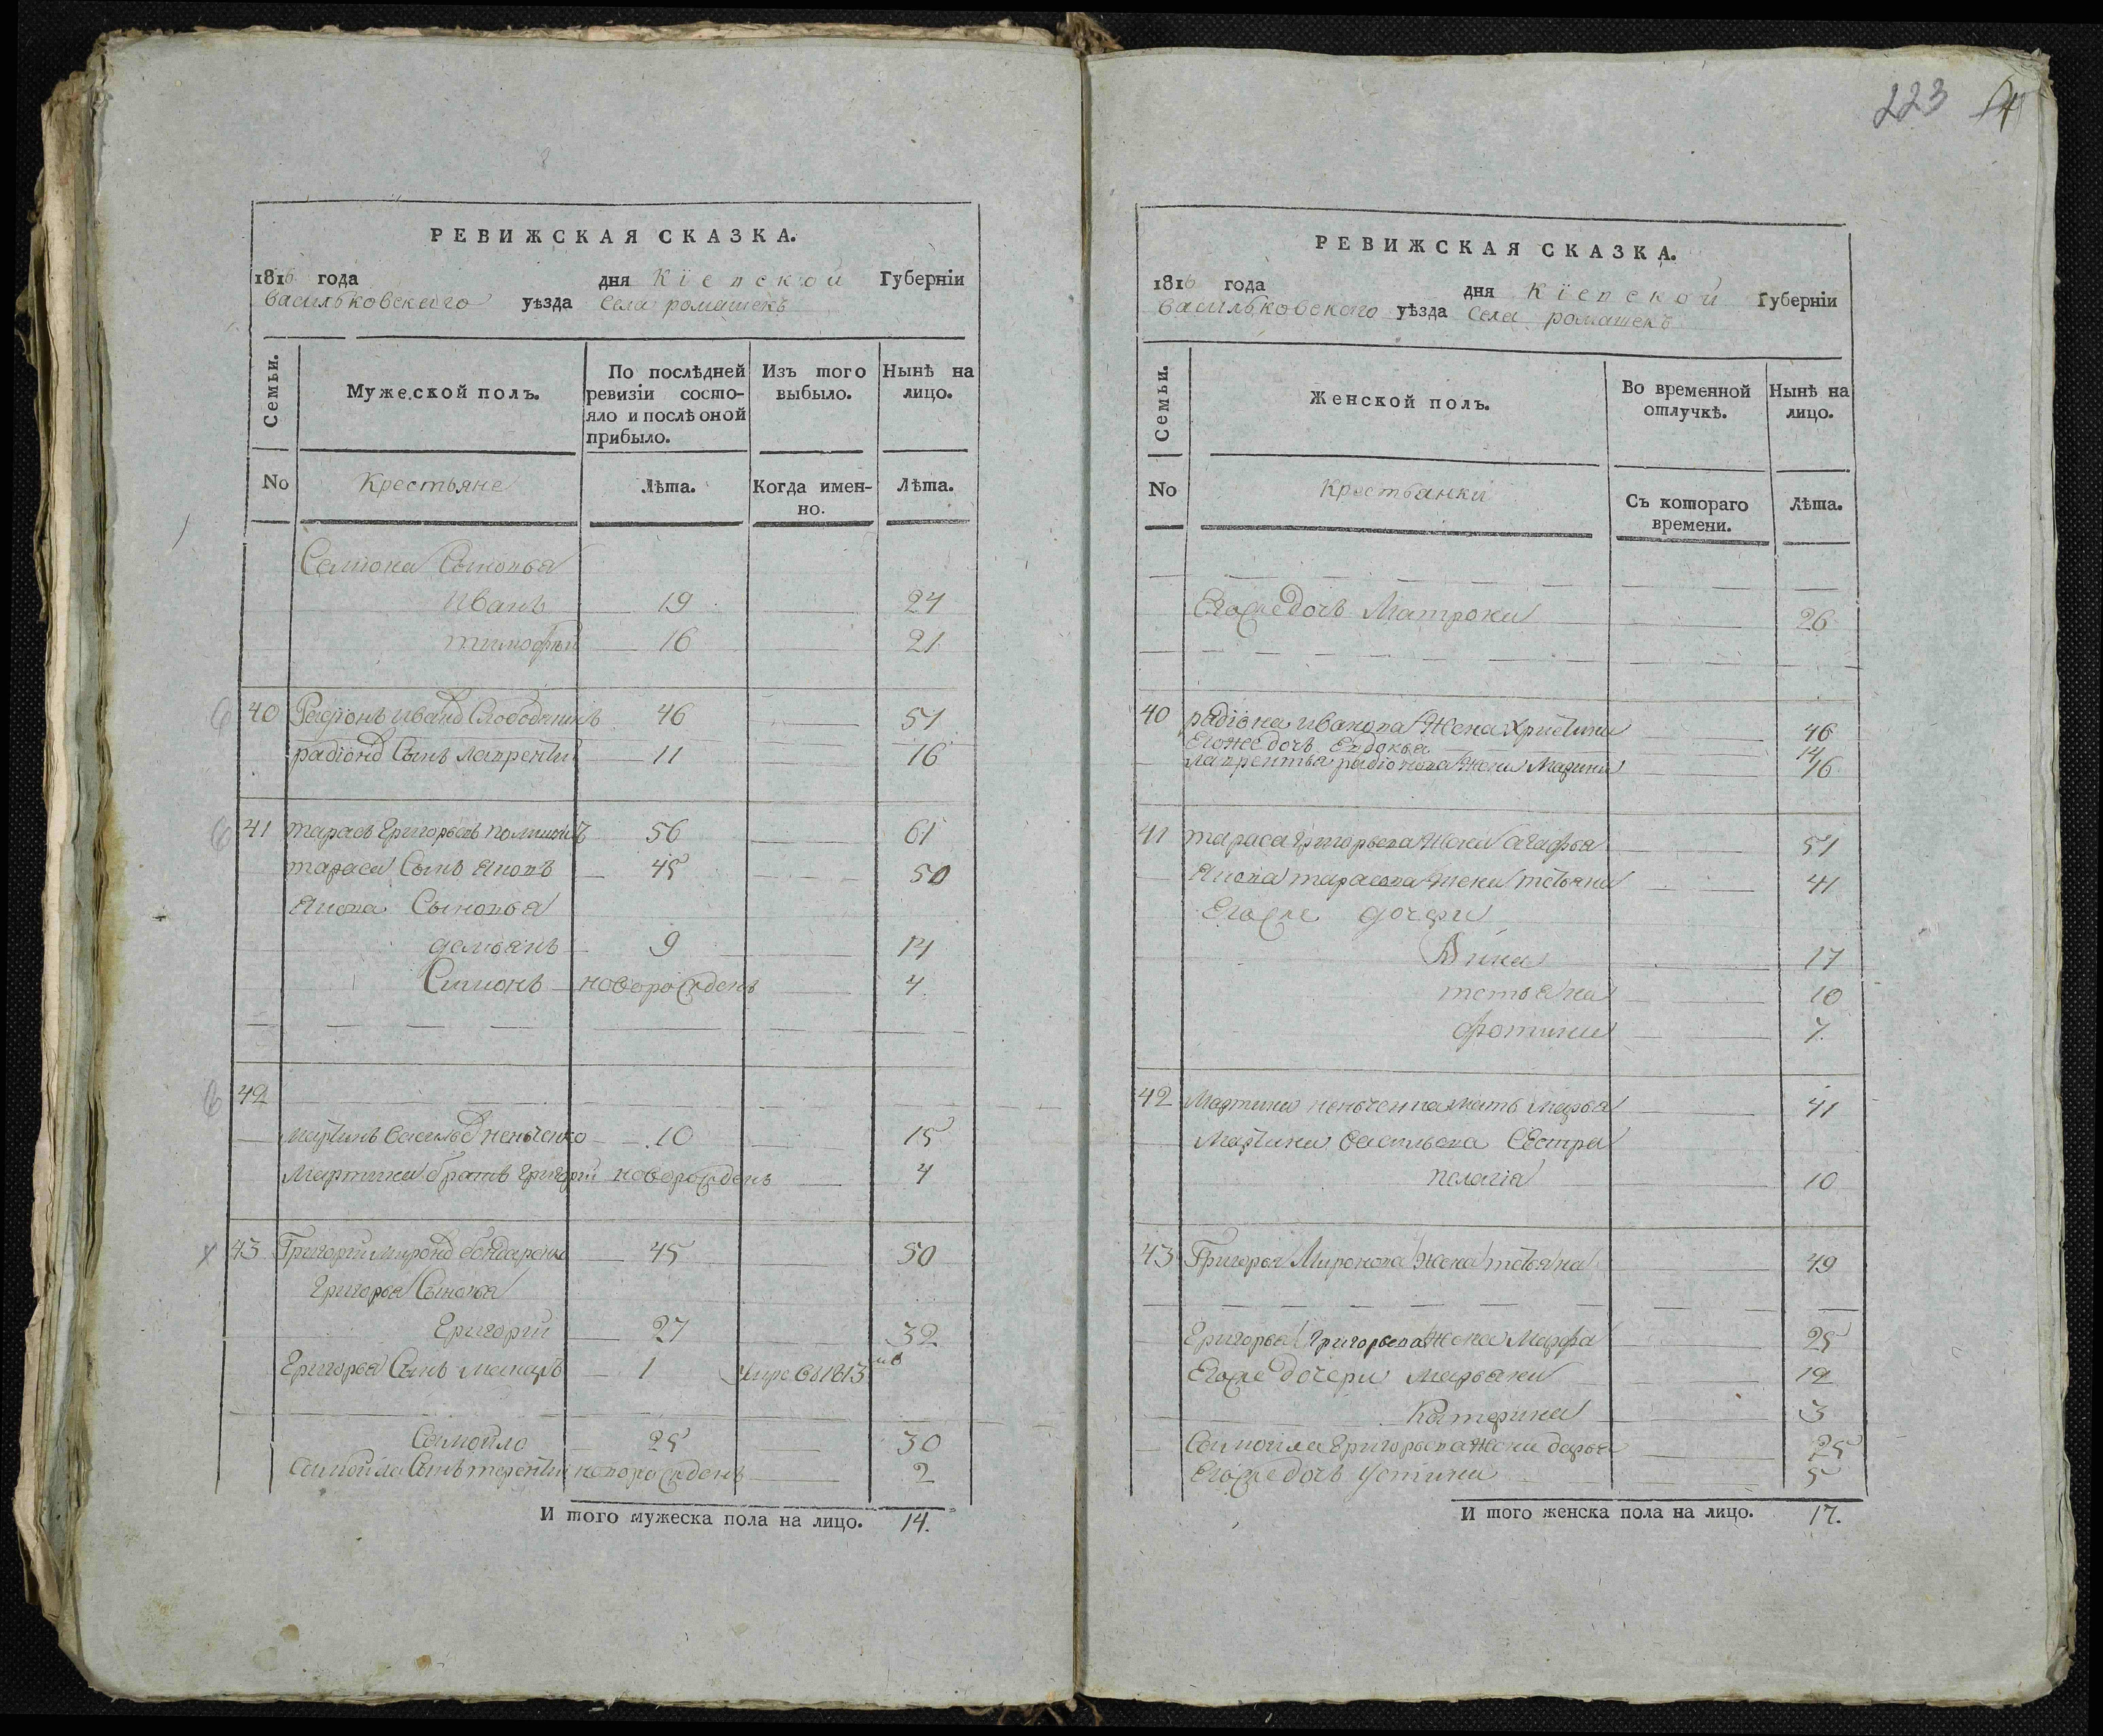 223
РЕВИЖСКАЯ СКАЗКА.
1816 года дня Кіевской Губерніи
Васильковского уѣзда Села ромашекъ
Семьи.
Мужеской полъ.
По послѣдней ревизіи состо-
яло и послѣ оной
прибыло.
Изъ того выбыло.
Нынѣ на лицо.
No
Крестьяне
Лѣта.
Когда имен-
но.
Лѣта.
Семіона Сыновья
Иванъ 19 24
тимофѣй 16 21
40 Радіонъ Иванов Слободяникъ 46 51
радіонов Сынъ лаврентій 11 16
41 тарасъ Григорьевъ 56 61
тараса Сынъ Яковъ 45 50
Якова Сыновья
демьянъ 9 14
Симонъ новорожденъ 4
42
Мартинъ Васильев 10 15
Мартина братъ Григорій новорожденъ 4
43 Григорій Миронов бондаренко 45 50
Григорья Сыновья
Григорій 27 32
Григорья Сынъ макаръ 1 умре въ 1813мъ
Самойло 25 30
Самойла Сынъ терентій новорожденъ 2
И того мужеска пола на лицо. 14.
РЕВИЖСКАЯ СКАЗКА.
1816 года дня Кіевской Губерніи
Васильковского уѣзда Села ромашекъ
Семьи.
Женской полъ.
Во временной
отлучкѣ.
Нынѣ на
лицо.
No
Крестьянки
Съ котораго
времени.
Лѣта.
Егоже дочь Матрона 26
40 радіона иванова Жена Христина 46
Егоже дочь Евдокья 14
лаврентья радіонова Жена Марина 16
41 тараса григорьева Жена агафья 51
Якова тарасова жена тетьяна 41
Егоже дочери
Анна 17
тетьяна 10
фотина 7
42 Мартина мать марья 41
Мартина Васильева Сестра
пелагія 10
43 Григорья Миронова Жена тетьяна 49
Григорья Григорьева Жена Марфа 25
Егоже дочери марьяна 12
Катерина 3
Самойла Григорьева Жена дарья 25
Егоже дочь Устина 5
И того женска пола на лицо. 17.